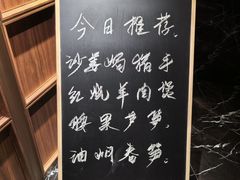 今日推荐.
沙姜焗猪手
红烧羊肉煲
腰果芦笋.
油焖春笋.